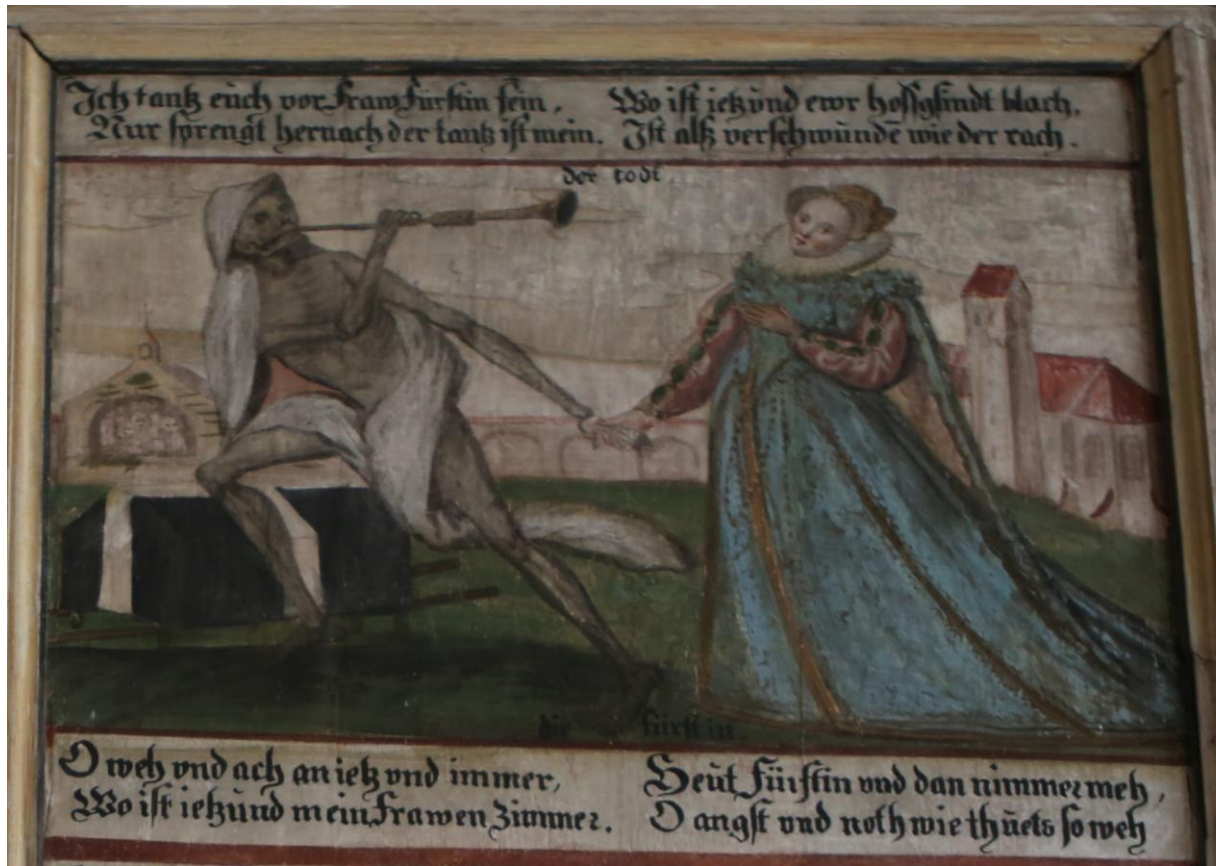 Ich tantz eüch vor Fraw Fürstin fein,
Nur sprengt hernach der tantz ist mein.
Wo ist ietzünd ewr hoffgsindt
Ist alß verschwündē wie der rach.
der todt
die fürstin.
O weh vnd ach an ietz vnd immer,
Wo ist ietzünd mein Frawen Zimmer.
Heüt Fürstin vnd dan nimmer meh,
O angst vnd noth wie thüets so weh